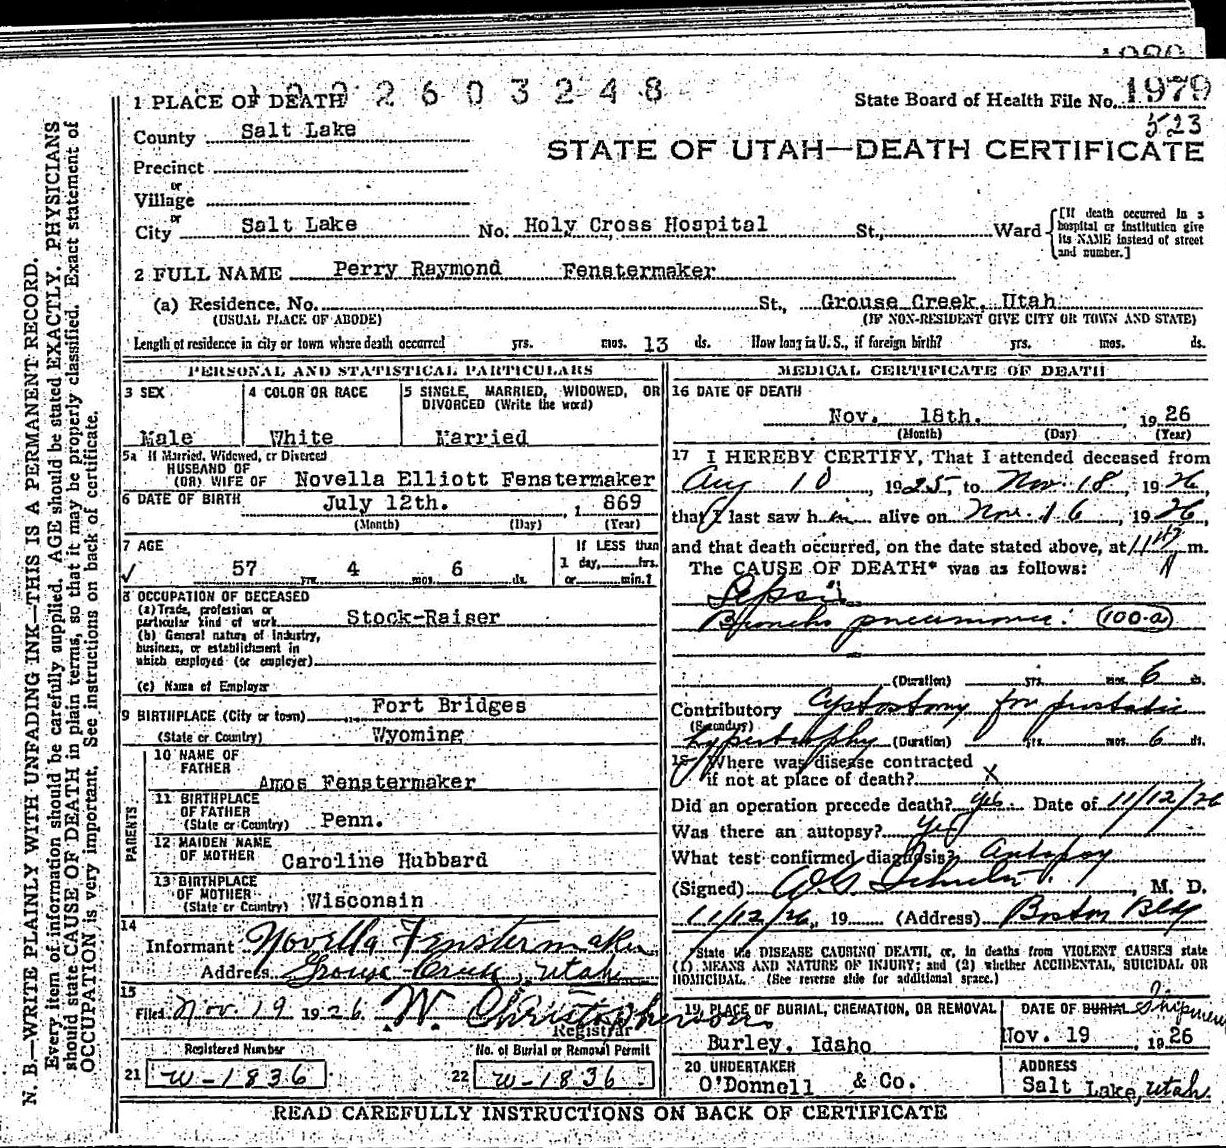 192603248
1 PLACE OF DEATH
State Board of Health File No. 1979
523
County Salt Lake
STATE OF UTAH—DEATH CERTIFICATE
Precinct
or
Village
or
City Salt Lake No. Holy Cross Hospital St., Ward
[If death occurred in a hospital or institution give its NAME instead of street and number.]
2 FULL NAME Perry Raymond Fenstermaker
(a) Residence. No. St., Grouse Creek, Utah
(USUAL PLACE OF ABODE) (IF NON-RESIDENT GIVE CITY OR TOWN AND STATE)
Length of residence in city or town where death occurred yrs. mos. 13 ds. How long in U. S., if foreign birth? yrs. mos. ds.
PERSONAL AND STATISTICAL PARTICULARS
3 SEX 4 COLOR OR RACE 5 SINGLE, MARRIED, WIDOWED, OR
DIVORCED (Write the word)
Male White Married
5a If Married, Widowed, or Divorced
HUSBAND OF
(OR) WIFE OF Novella Elliott Fenstermaker
6 DATE OF BIRTH July 12th. , 1 869
(Month) (Day) (Year)
7 AGE If LESS than
57 yrs. 4 mos. 6 ds. 1 day, hrs.
or min.?
8 OCCUPATION OF DECEASED
(a) Trade, profession or
particular kind of work Stock-Raiser
(b) General nature of Industry,
business, or establishment in
which employed (or employer)
(c) Name of Employer
9 BIRTHPLACE (City or town) Fort Bridges
(State or Country) Wyoming
PARENTS
10 NAME OF
FATHER Amos Fenstermaker
11 BIRTHPLACE
OF FATHER
(State or Country) Penn.
12 MAIDEN NAME
OF MOTHER Caroline Hubbard
13 BIRTHPLACE
OF MOTHER
(State or Country) Wisconsin
14
Informant Novella Fenstermaker
Address Grouse Creek, Utah
15
Filed Nov. 19 1926. W. Christopherson
Registrar
Registered Number No. of Burial or Removal Permit
21 W-1836 22 W-1836
MEDICAL CERTIFICATE OF DEATH
16 DATE OF DEATH
Nov. 18th. , 1926
(Month) (Day) (Year)
17 I HEREBY CERTIFY, That I attended deceased from
Aug 10 , 1925, to Nov. 18 , 1926,
that I last saw him alive on Nov. 16 , 1926,
and that death occurred, on the date stated above, at m.
The CAUSE OF DEATH* was as follows:
Sepsis
Broncho pneumonia. (100-a)
(Duration) yrs. mos. 6 ds.
Contributory Cystostomy for prostatic
(Secondary)
hypertrophy (Duration) yrs. mos. 6 ds.
18 Where was disease contracted
if not at place of death? X
Did an operation precede death? yes Date of 11/12/26
Was there an autopsy? yes
What test confirmed diagnosis? Autopsy
(Signed) , M. D.
11/12/26, 19 (Address) Boston Bldg
State the DISEASE CAUSING DEATH, or, in deaths from VIOLENT CAUSES state
(1) MEANS AND NATURE OF INJURY; and (2) whether ACCIDENTAL, SUICIDAL OR
HOMICIDAL. (See reverse side for additional space.)
19 PLACE OF BURIAL, CREMATION, OR REMOVAL DATE OF BURIAL Shipment
Burley, Idaho Nov. 19 , 1926
20 UNDERTAKER ADDRESS
O'Donnell & Co. Salt Lake, Utah.
READ CAREFULLY INSTRUCTIONS ON BACK OF CERTIFICATE
N. B.—WRITE PLAINLY WITH UNFADING INK—THIS IS A PERMANENT RECORD.
Every item of information should be carefully supplied. AGE should be stated EXACTLY. PHYSICIANS
should state CAUSE OF DEATH in plain terms, so that it may be properly classified. Exact statement of
OCCUPATION is very important. See instructions on back of certificate.